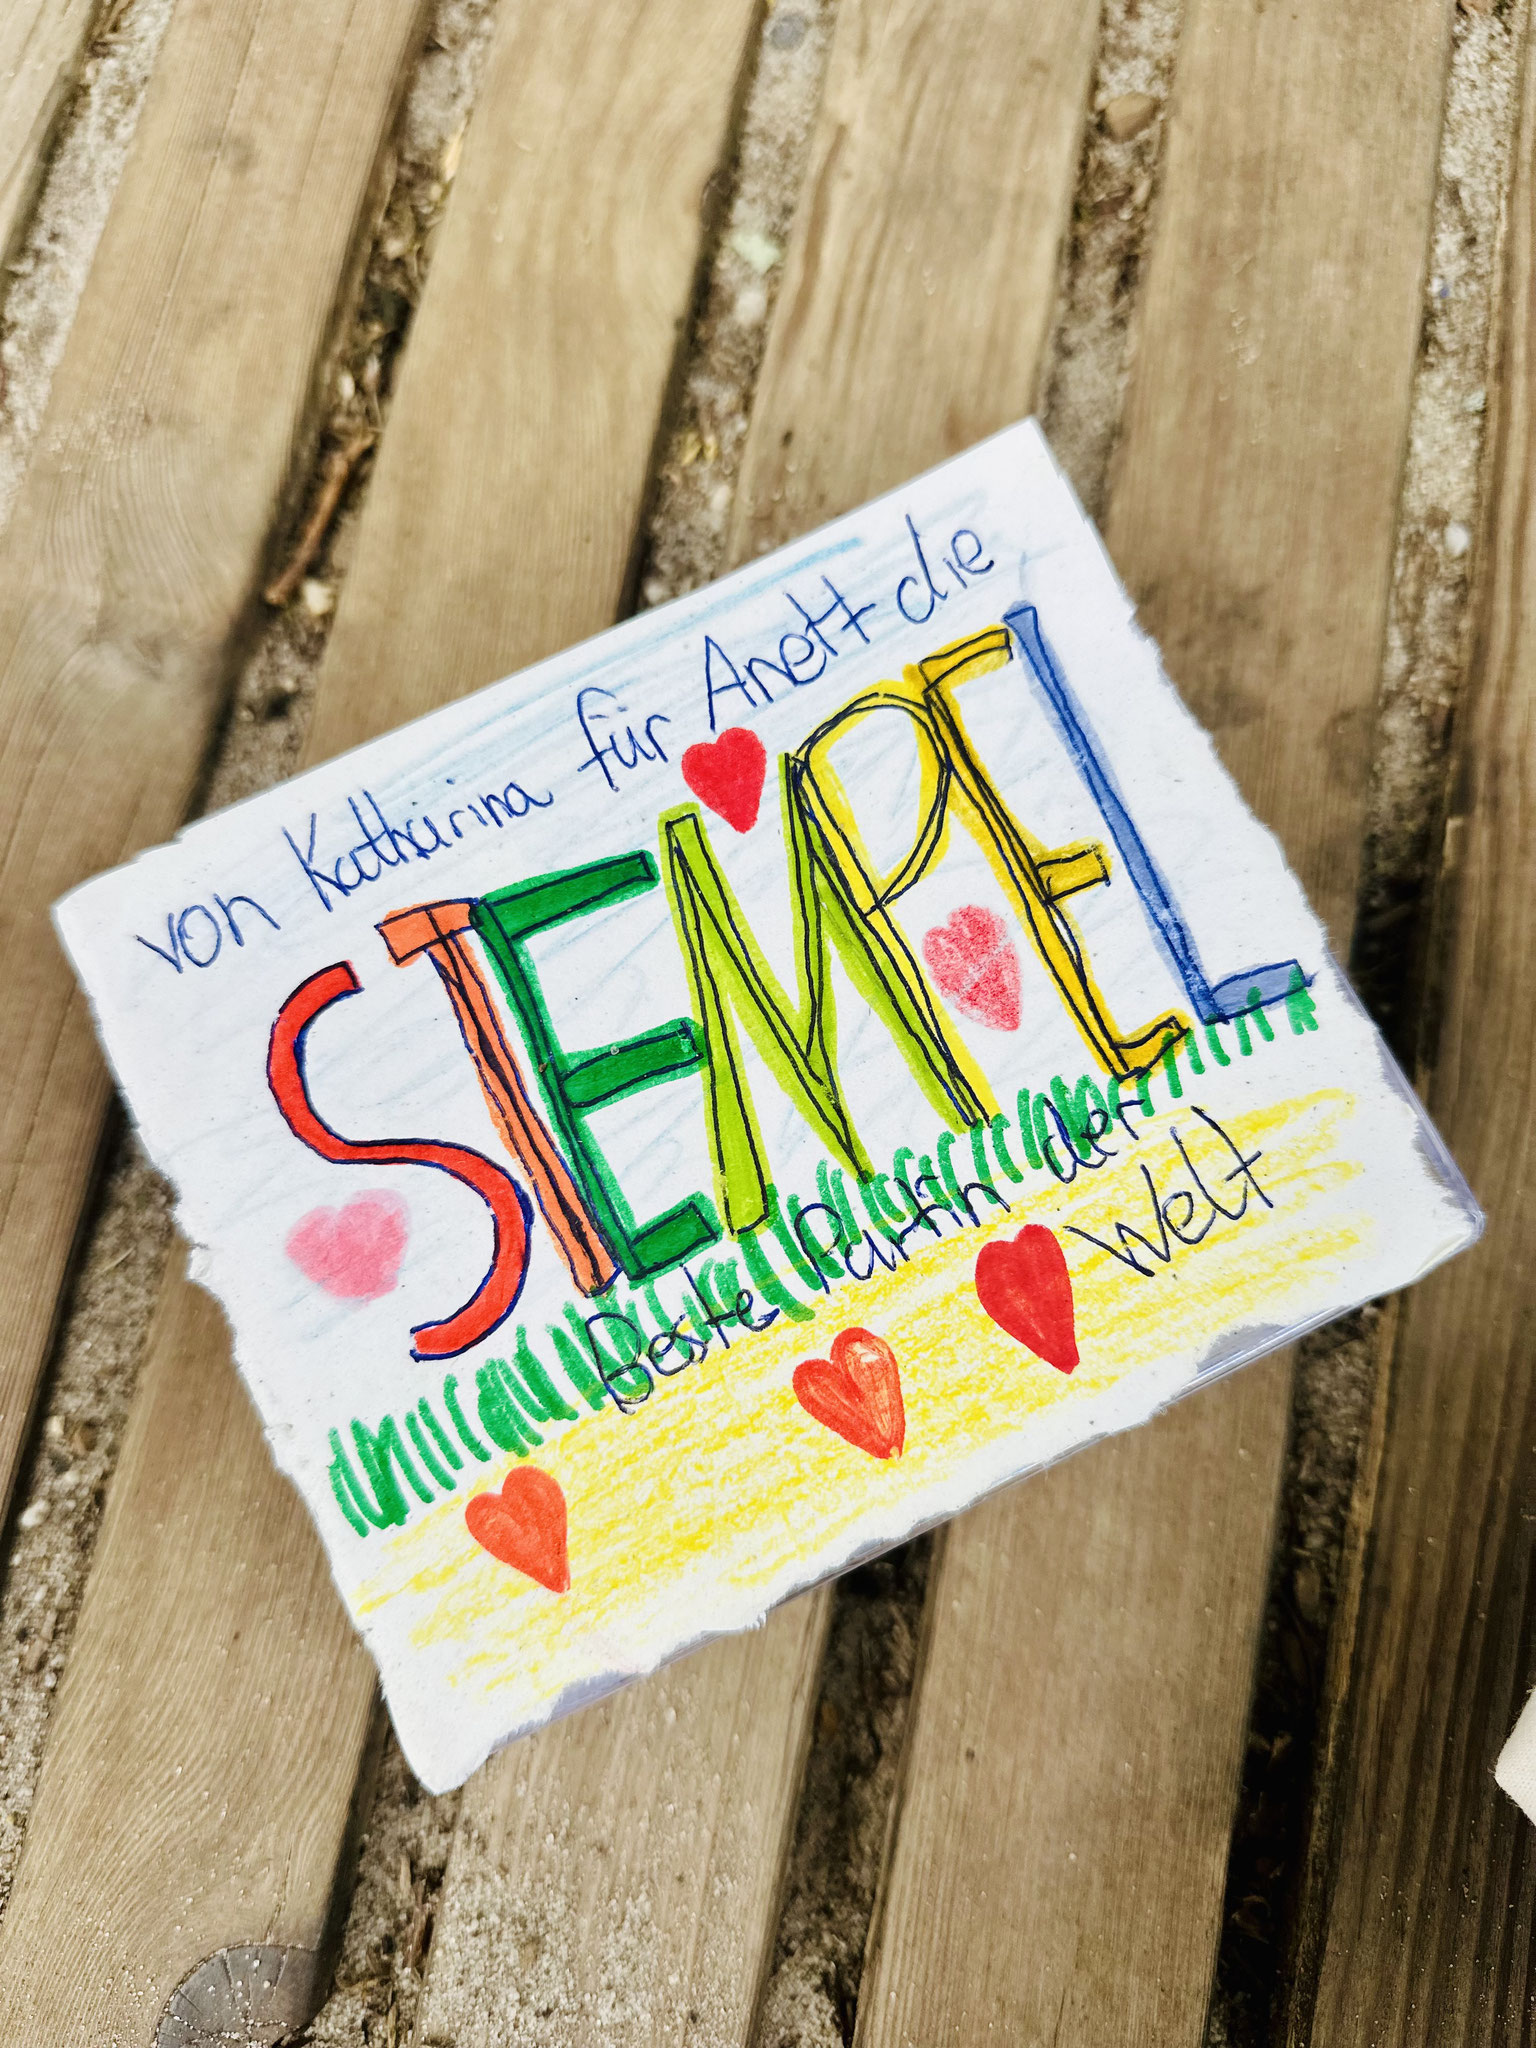 von Katharina für Anett die
STEMPEL
Beste Patin der
Welt